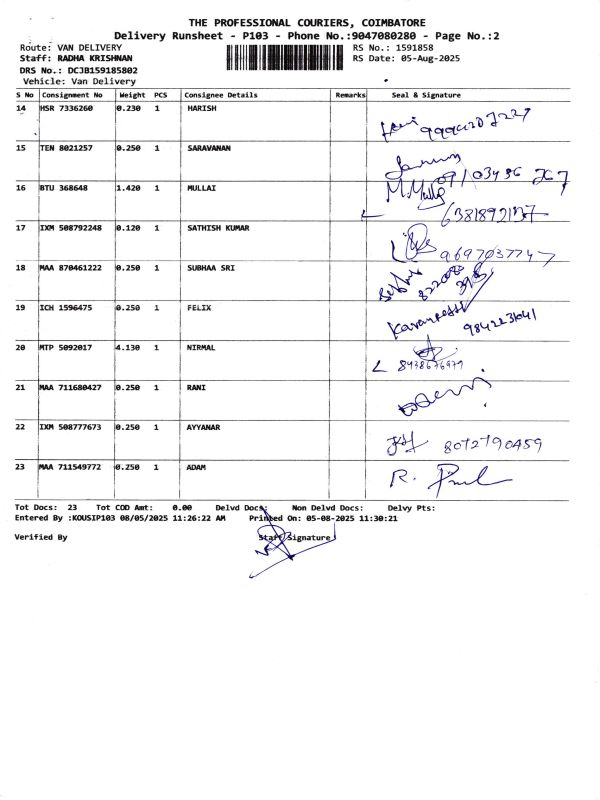 THE PROFESSIONAL COURIERS, COIMBATORE
Delivery Runsheet - P103 - Phone No.:9047080280 - Page No.:2
Route: VAN DELIVERY RS No.: 1591858
Staff: RADHA KRISHNAN RS Date: 05-Aug-2025
DRS No.: DCJB159185802
Vehicle: Van Delivery
S No Consignment No Weight PCS Consignee Details Remarks Seal & Signature
14 HSR 7336260 0.230 1 HARISH
15 TEN 8021257 0.250 1 SARAVANAN
16 BTU 368648 1.420 1 MULLAI M. Mullai
17 IXM 508792248 0.120 1 SATHISH KUMAR 9697037747
18 MAA 870461222 0.250 1 SUBHAA SRI
19 ICH 1596475 0.250 1 FELIX
20 MTP 5092017 4.130 1 NIRMAL 8938676979
21 MAA 711680427 0.250 1 RANI
22 IXM 508777673 0.250 1 AYYANAR 8072790459
23 MAA 711549772 0.250 1 ADAM R.
Tot Docs: 23 Tot COD Amt: 0.00 Delvd Docs: Non Delvd Docs: Delvy Pts:
Entered By :KOUSIP103 08/05/2025 11:26:22 AM Printed On: 05-08-2025 11:30:21
Verified By Staff Signature